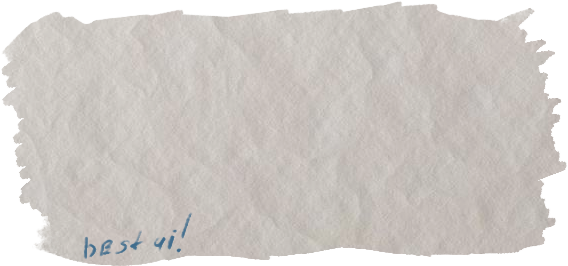 best ai!